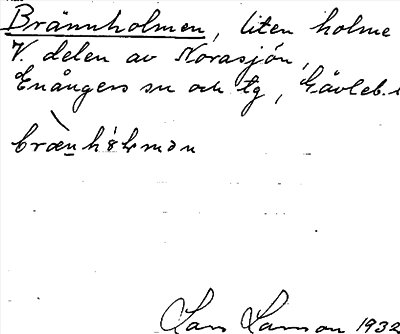 Brännholmen, liten holme
V. delen av Norasjön,
Enångers sn och tg, Gävleb.
Lars Larsson 1932